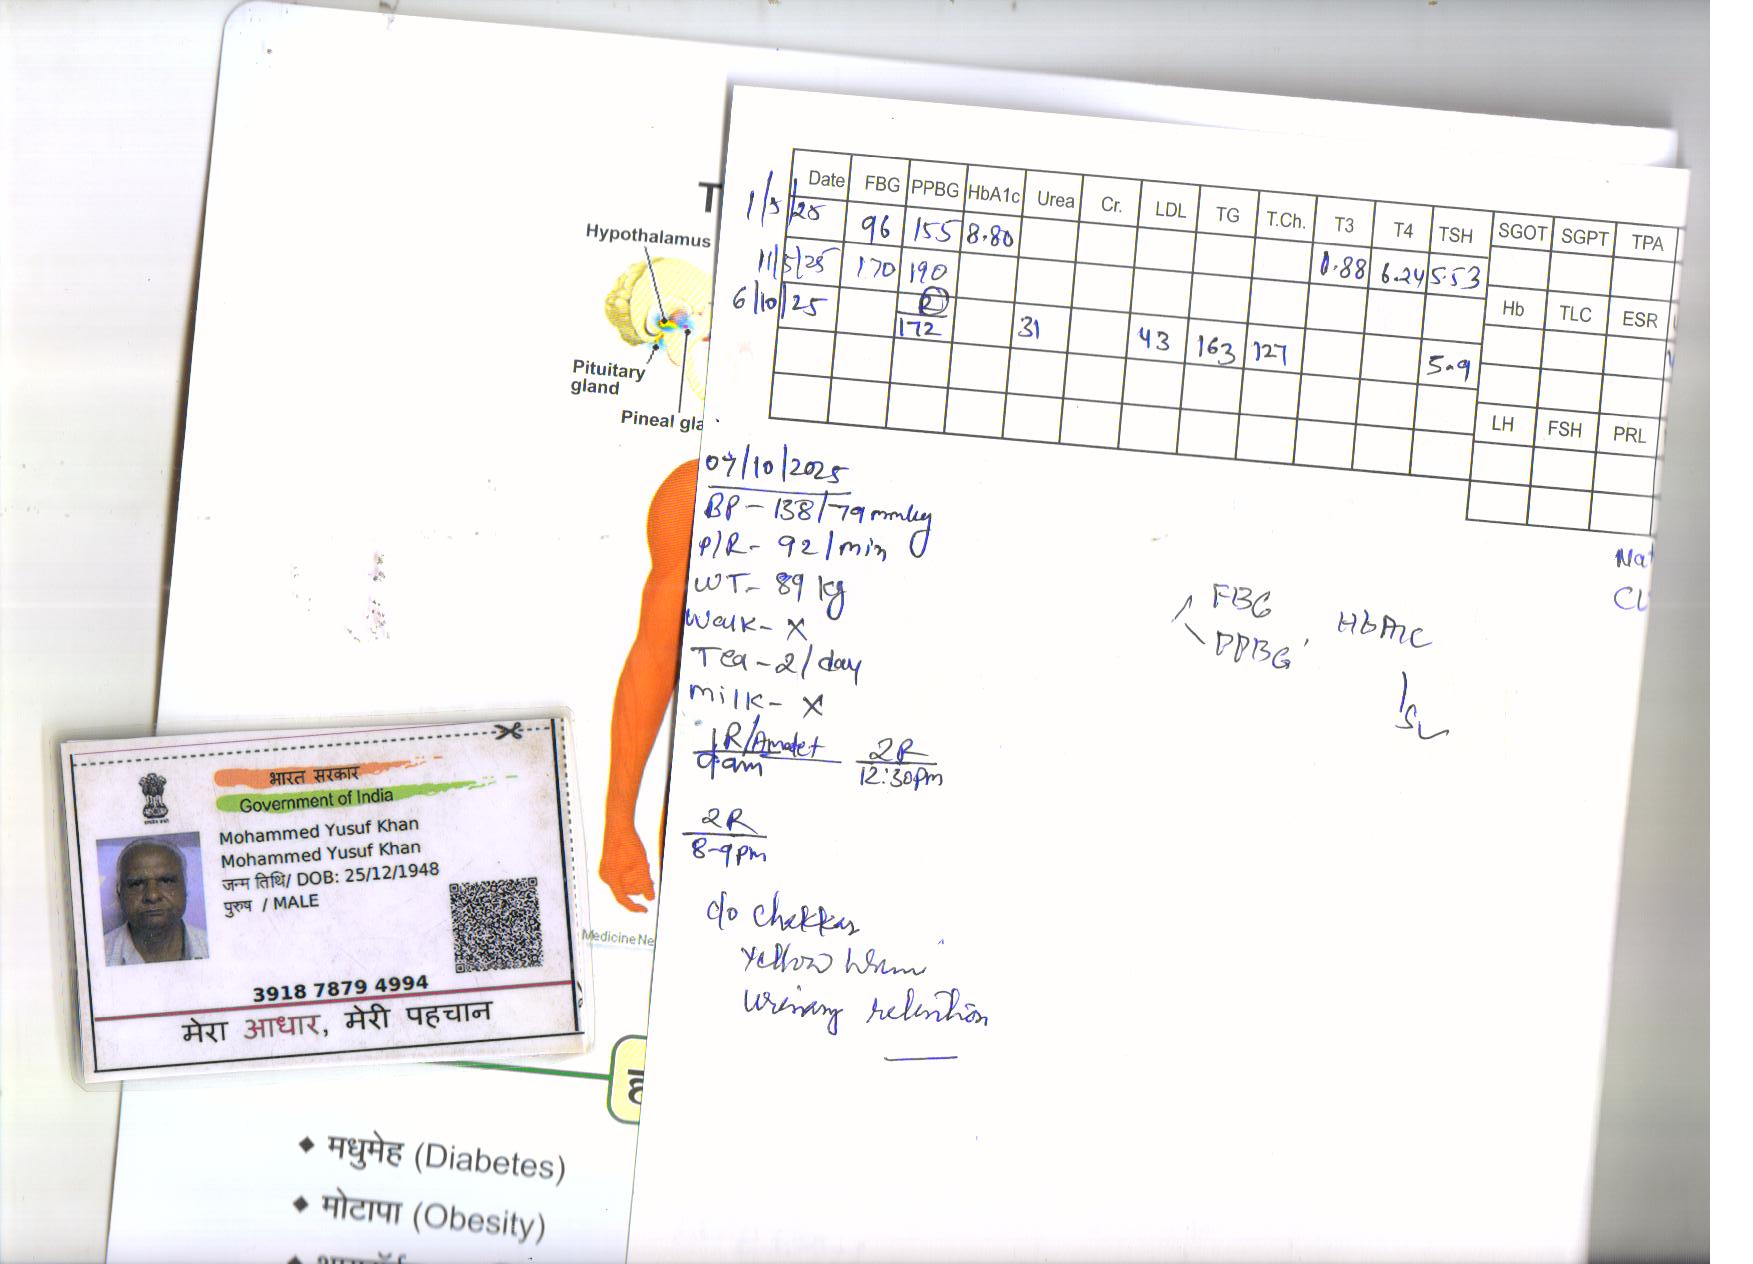 T
Hypothalamus
Pituitary
gland
Pineal gla
Medicine Ne
भारत सरकार
Government of India
Mohammed Yusuf Khan
Mohammed Yusuf Khan
जन्म तिथि/ DOB: 25/12/1948
पुरुष / MALE
3918 7879 4994
मेरा आधार, मेरी पहचान
मधुमेह (Diabetes)
मोटापा (Obesity)
Date FBG PPBG HbA1c Urea Cr. LDL TG T.Ch. T3 T4 TSH SGOT SGPT TPA
1/5/25 96 155 8.80
11/5/25 170 190 0.88 6.24 5.53
Hb TLC ESR
6/10/25 172 31 43 163 127 5.9
LH FSH PRL
07/10/2025
BP - 138/79 mmhg
P/R - 92/min
WT - 89 kg
Walk - X
Tea - 2/day
Milk - X
1R/Amlet 2R
9am 12:30pm
2R
8-9pm
c/o chakkar
Yellow
urinary retention
FBG
PPBG HbA1c
Na+